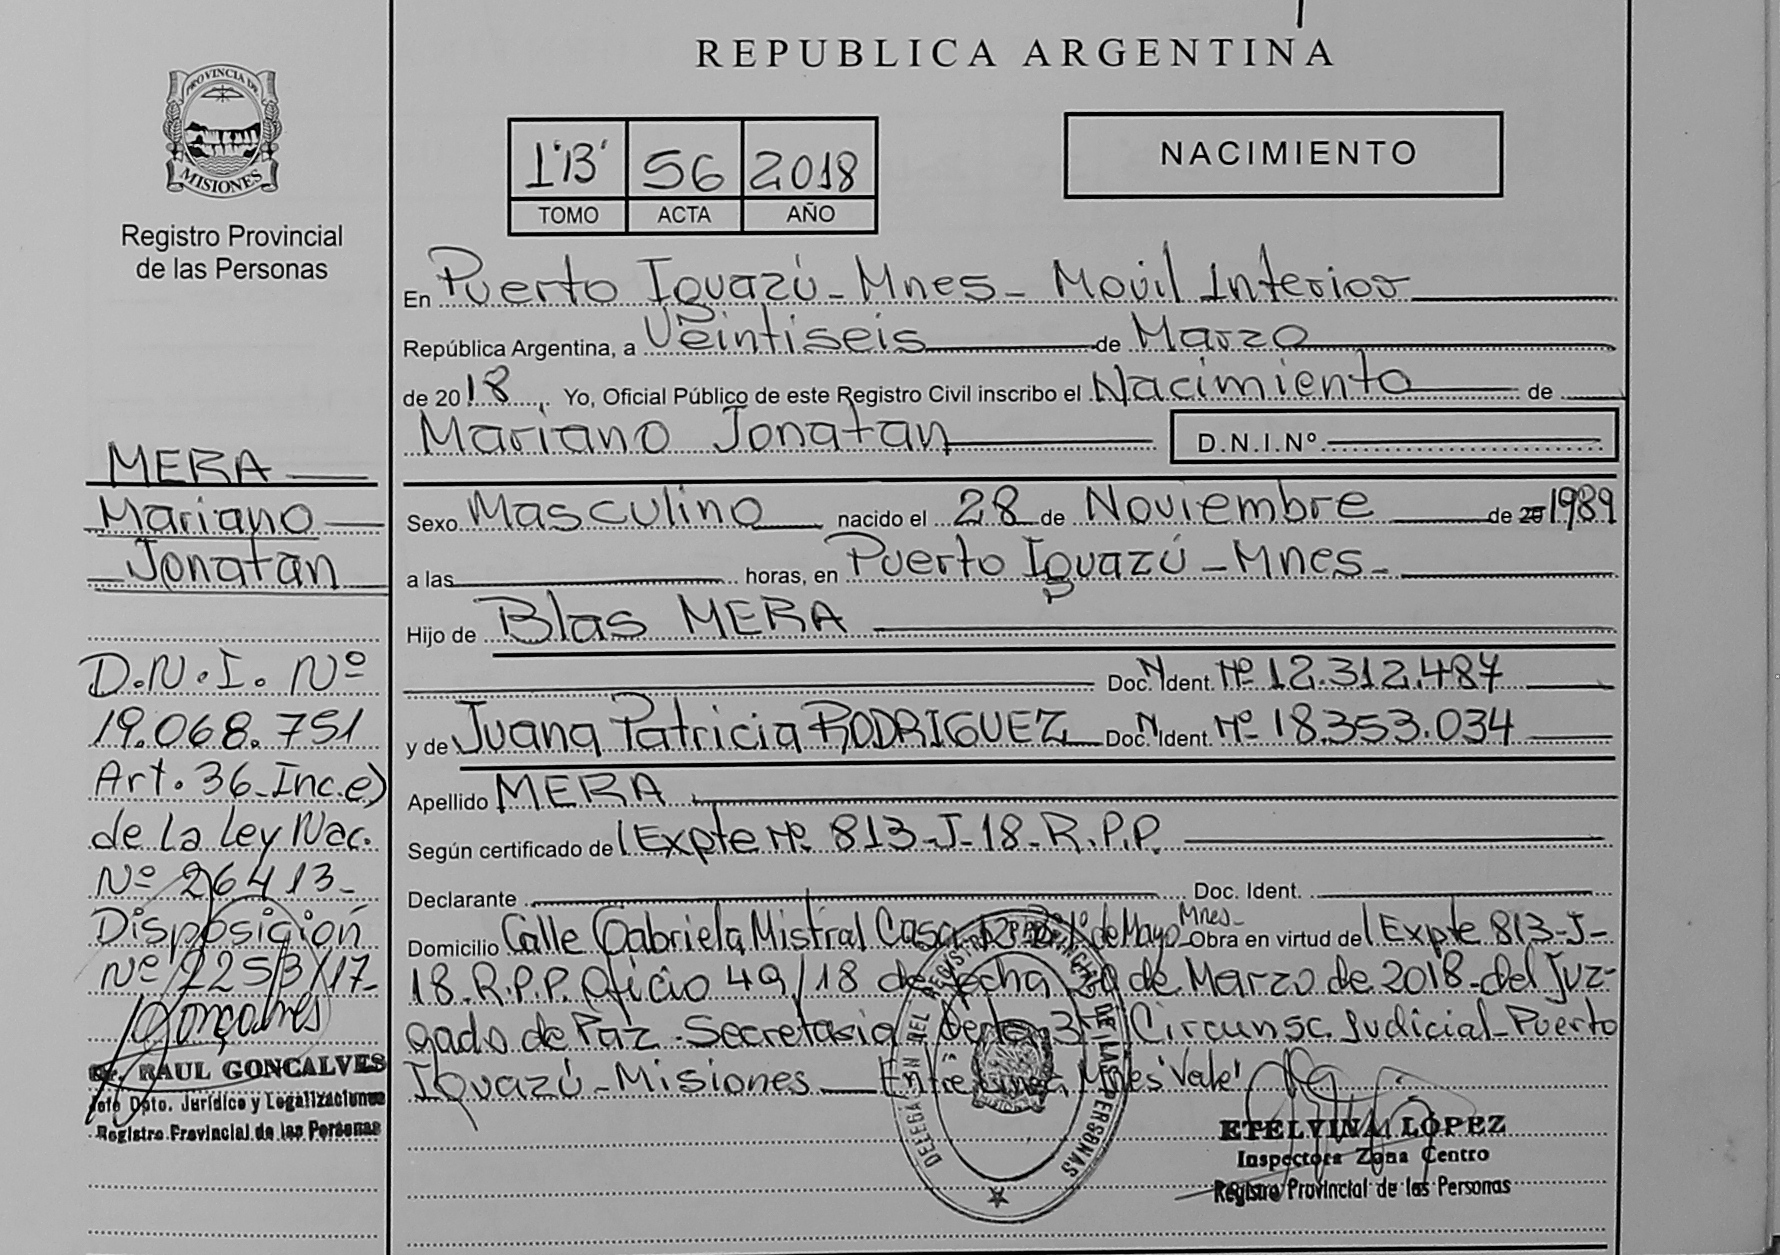 REPUBLICA ARGENTINA
PROVINCIA DE
MISIONES
Registro Provincial
de las Personas
1'B' 56 2018
TOMO ACTA AÑO
NACIMIENTO
En Puerto Iguazú - Mnes - Movil Interior
República Argentina, a Veintiseis de Marzo
de 2018. Yo, Oficial Público de este Registro Civil inscribo el Nacimiento de
Mariano Jonatan D.N.I.Nº
Sexo Masculino nacido el 28 de Noviembre de 20 1989
a las horas, en Puerto Iguazú - Mnes -
Hijo de Blas MERA
Doc. N Ident. Nº 12.312.487
y de Juana Patricia RODRIGUEZ Doc. N Ident. Nº 18.353.034
Apellido MERA
Según certificado de Expte Nº 813-J-18-R.P.P.
Declarante Doc. Ident.
Domicilio Calle Gabriela Mistral Casa 1º de Mayo Mnes- Obra en virtud de Expte 813-J-
18-R.P.P. Oficio 49/18 de fecha de Marzo de 2018-del Juz-
gado de Paz - Secretaria 3º Circunsc. Judicial-Puerto
Iguazú - Misiones Entre Linea Mnes 'Vale'
MERA
Mariano
Jonatan
D.N.I. Nº
19.068.751
Art. 36-Inc.e)
de la Ley Nac.
Nº 26413-
Disposición
Nº 2253/17-
Goncalves
Dr. RAUL GONCALVES
Jefe Dpto. Jurídico y Legalizaciones
Registro Provincial de las Personas
DELEGACION DEL REGISTRO PROVINCIAL DE LAS PERSONAS
ETELVINA LOPEZ
Inspectora Zona Centro
Registro Provincial de las Personas